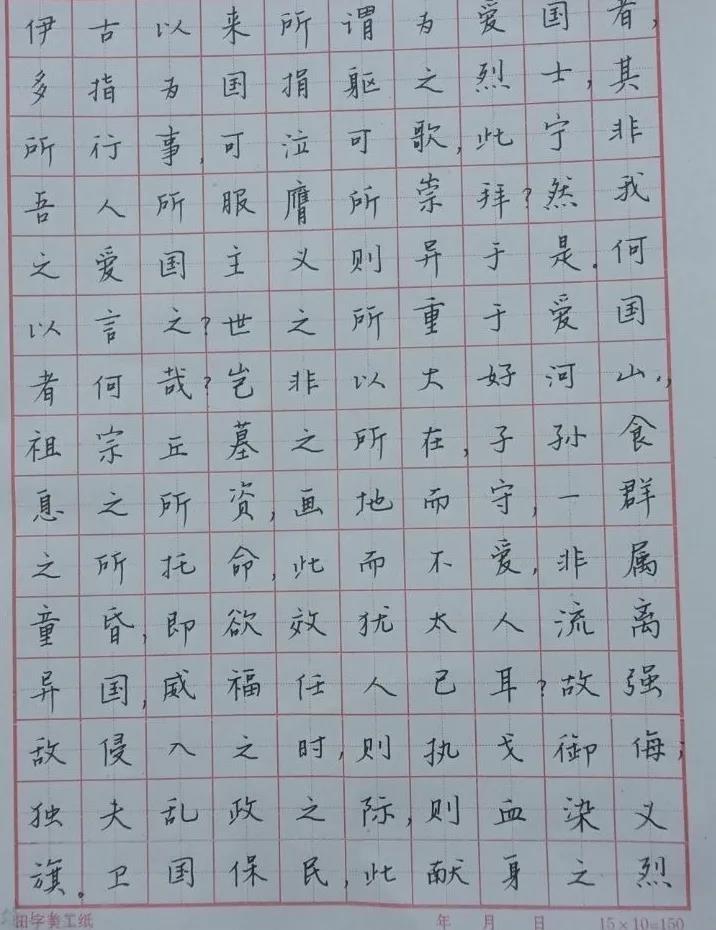 伊古以来所谓为爱国者,
多指为国捐躯之烈士,其
所行事,可泣可歌,此宁非
吾人所服膺所崇拜?然我
之爱国主义则异于是。何
以言之?世之所重于爱国
者何哉?岂非以大好河山,
祖宗丘墓之所在,子孙食
息之所资,画地而守,一群
之所托命,此而不爱,非属
童昏,即欲效犹太人流离
异国,威福任人已耳?故强
敌侵入之时,则执戈御侮;
独夫乱政之际,则血染义
旗。卫国保民,此献身之烈
田字美工纸 年 月 日 15×10=150